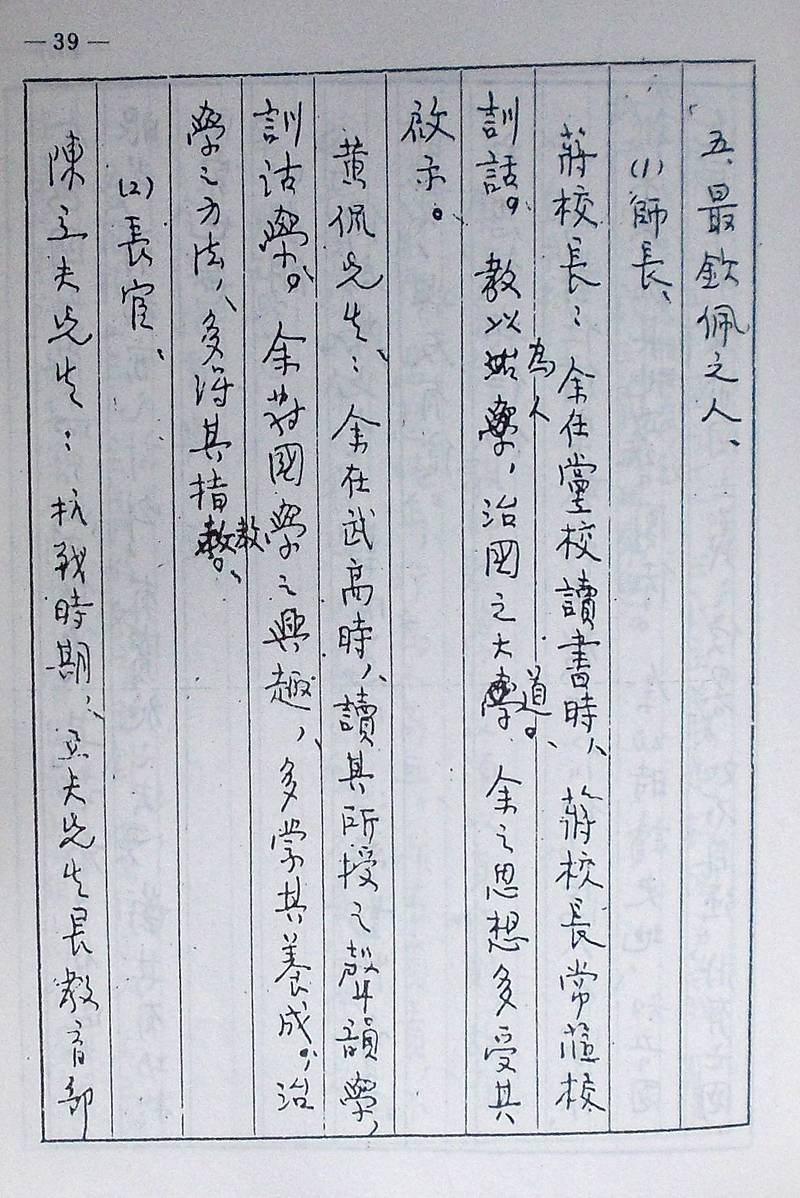 — 39 —
五、最欽佩之人、
(1)師長、
蔣校長：余在黨校讀書時、蔣校長常蒞校
訓話。教以為人治學，治國之大道。余之思想多受其
啟示。
黃佩先生：余在武高時、讀其所授之聲韻學，
訓詁學。余對國學之興趣，多蒙其養成。治
學之方法，多得其指教。
(2)長官、
陳立夫先生：抗戰時期、立夫先生長教育部